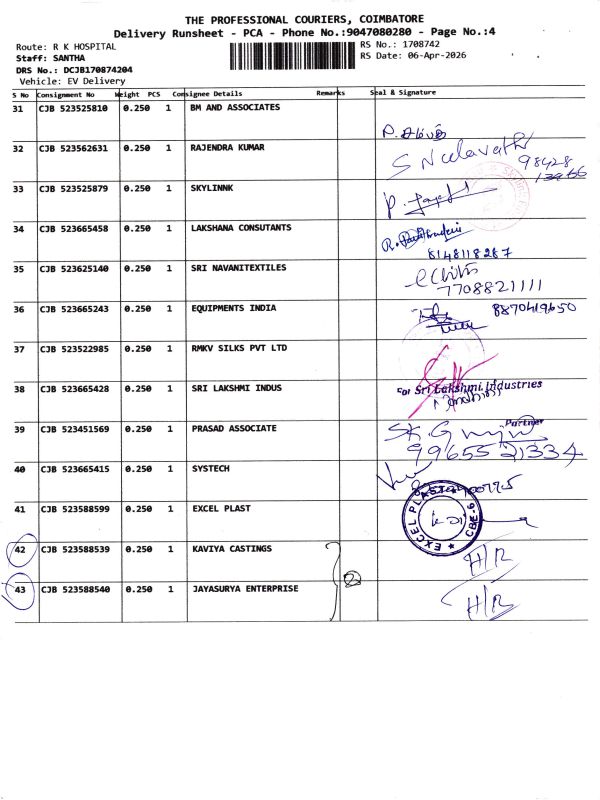 THE PROFESSIONAL COURIERS, COIMBATORE
Delivery Runsheet - PCA - Phone No.:9047080280 - Page No.:4
Route: R K HOSPITAL
RS No.: 1708742
Staff: SANTHA
RS Date: 06-Apr-2026
DRS No.: DCJB170874204
Vehicle: EV Delivery
S No Consignment No Weight PCS Consignee Details Remarks Seal & Signature
31 CJB 523525810 0.250 1 BM AND ASSOCIATES
32 CJB 523562631 0.250 1 RAJENDRA KUMAR
98428
33 CJB 523525879 0.250 1 SKYLINNK
34 CJB 523665458 0.250 1 LAKSHANA CONSUTANTS
8148118287
35 CJB 523625140 0.250 1 SRI NAVANITEXTILES
7708821111
36 CJB 523665243 0.250 1 EQUIPMENTS INDIA 8870419650
37 CJB 523522985 0.250 1 RMKV SILKS PVT LTD
38 CJB 523665428 0.250 1 SRI LAKSHMI INDUS For Sri Lakshmi Industries
Partner
39 CJB 523451569 0.250 1 PRASAD ASSOCIATE
9965521334
40 CJB 523665415 0.250 1 SYSTECH
41 CJB 523588599 0.250 1 EXCEL PLAST EXCEL PLAST ★ CBE-6
42 CJB 523588539 0.250 1 KAVIYA CASTINGS H/R
43 CJB 523588540 0.250 1 JAYASURYA ENTERPRISE 2 H/R